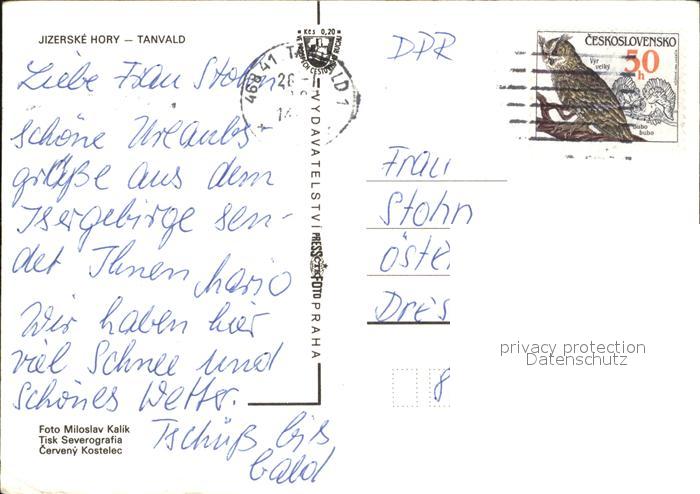 JIZERSKÉ HORY – TANVALD
Liebe Frau Stohn
schöne Urlaubs-
grüße aus dem
Isergebirge sen-
det Ihnen Mario
Wir haben hier
viel Schnee und
schönes Wetter.
Tschüß bis
bald
Foto Miloslav Kalík
Tisk Severografia
Červený Kostelec
Kčs 0,20
468 41 TANVALD 1
VYDAVATELSTVÍ PRESSFOTO PRAHA
DDR
ČESKOSLOVENSKO
50 h
Výr velký
bubo bubo
Frau
Stohn
Öste
Dres
8
privacy protection
Datenschutz